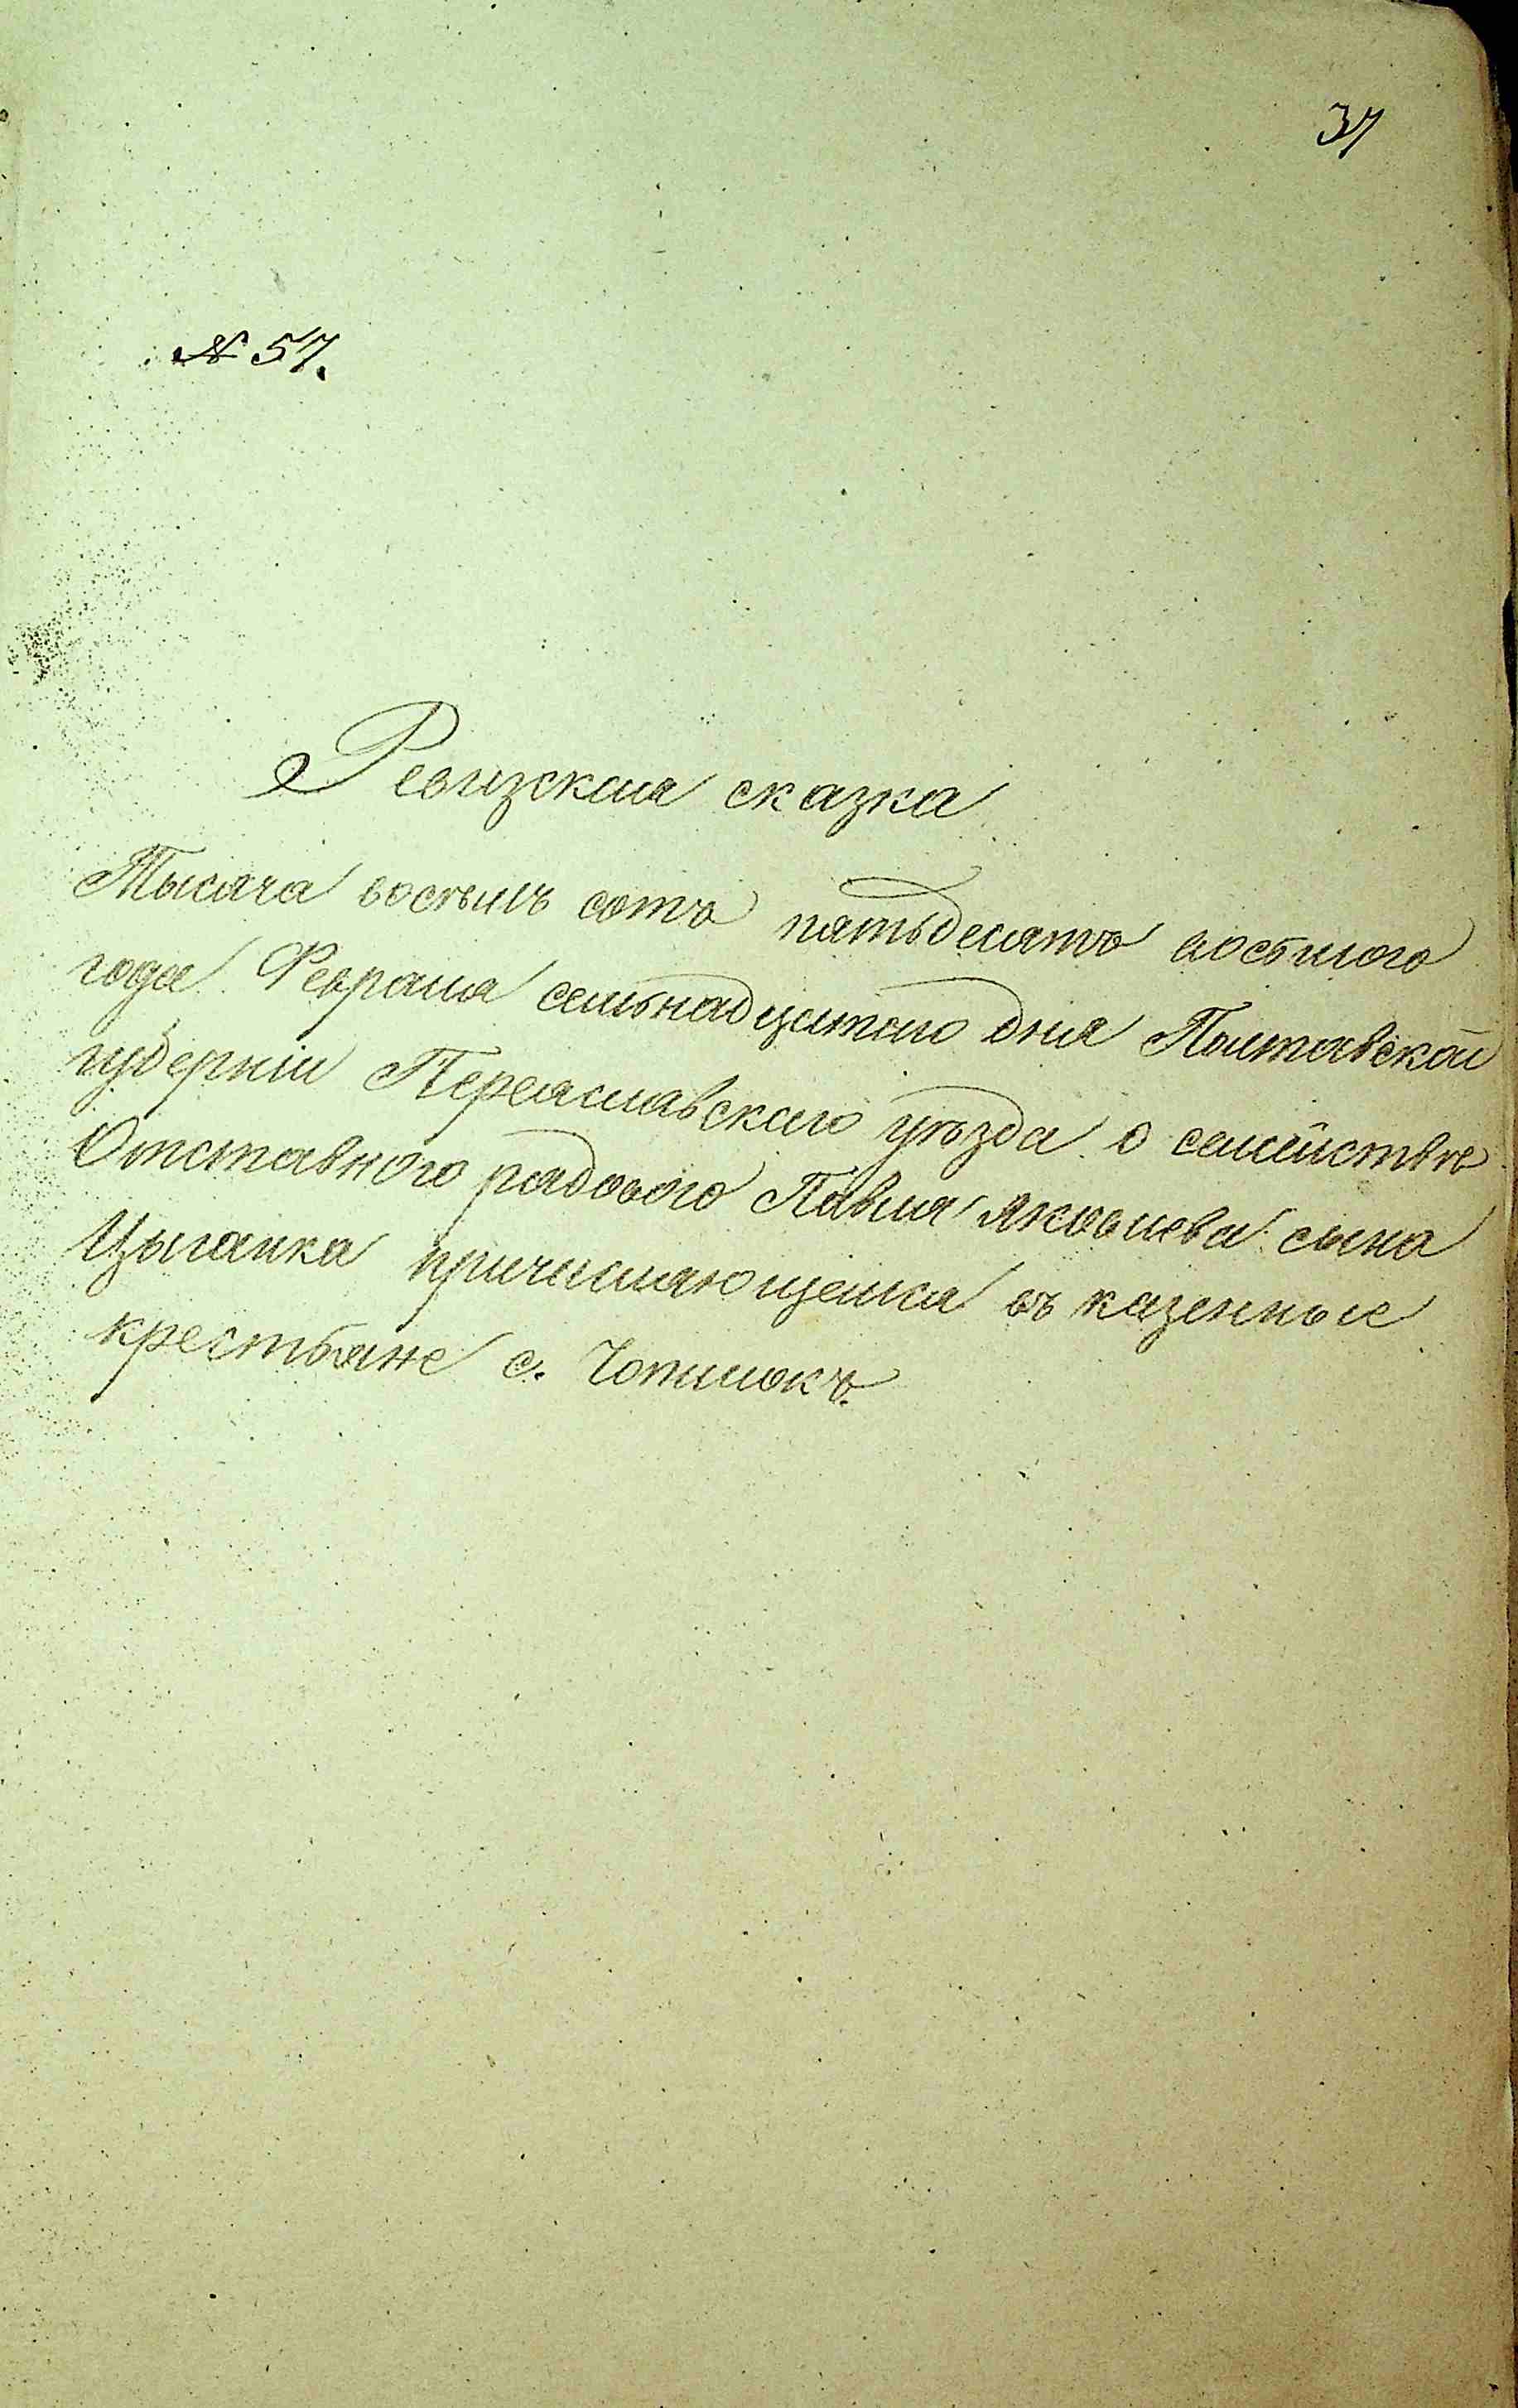 37
№ 57.
Ревизская сказка
Тысяча восемь сотъ пятьдесятъ восьмого
года Февраля семьнадцатаго дня Полтавской
губерніи Переяславскаго уѣзда о семействѣ
Отставного рядового Павла Яковлева сына
Цыганка причисляющемся въ казенные
крестьяне с. Чопилокъ.